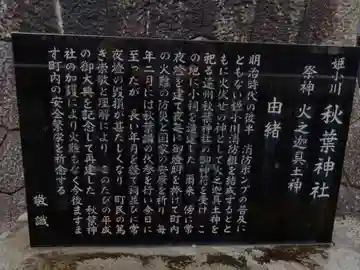 姫小川 秋葉神社
祭神 火之迦具土神
由緒
明治時代の後半 消防ポンプの普及に
ともない姫小川消防組を結成するとと
もに火伏せの神として火之迦具土神を
祀る遠州秋葉神社の御神符を受け こ
の地に小祠を造建した 爾来 傍に常
夜燈を建て夜毎に御燈明を掛けて町内
の火難の防災と国家の安寧を祈り 毎
年二月には秋葉講の代参を行い今日に
至ったが 長い年月を経て祠並びに常
夜燈の毀損が甚だしくなり 町民の篤
き崇敬と理解により このたびの平成
の御大典を記念して再建した 秋葉神
社の加護により災難もなく今後ますま
す町内の安全栄学を祈念する
敬識